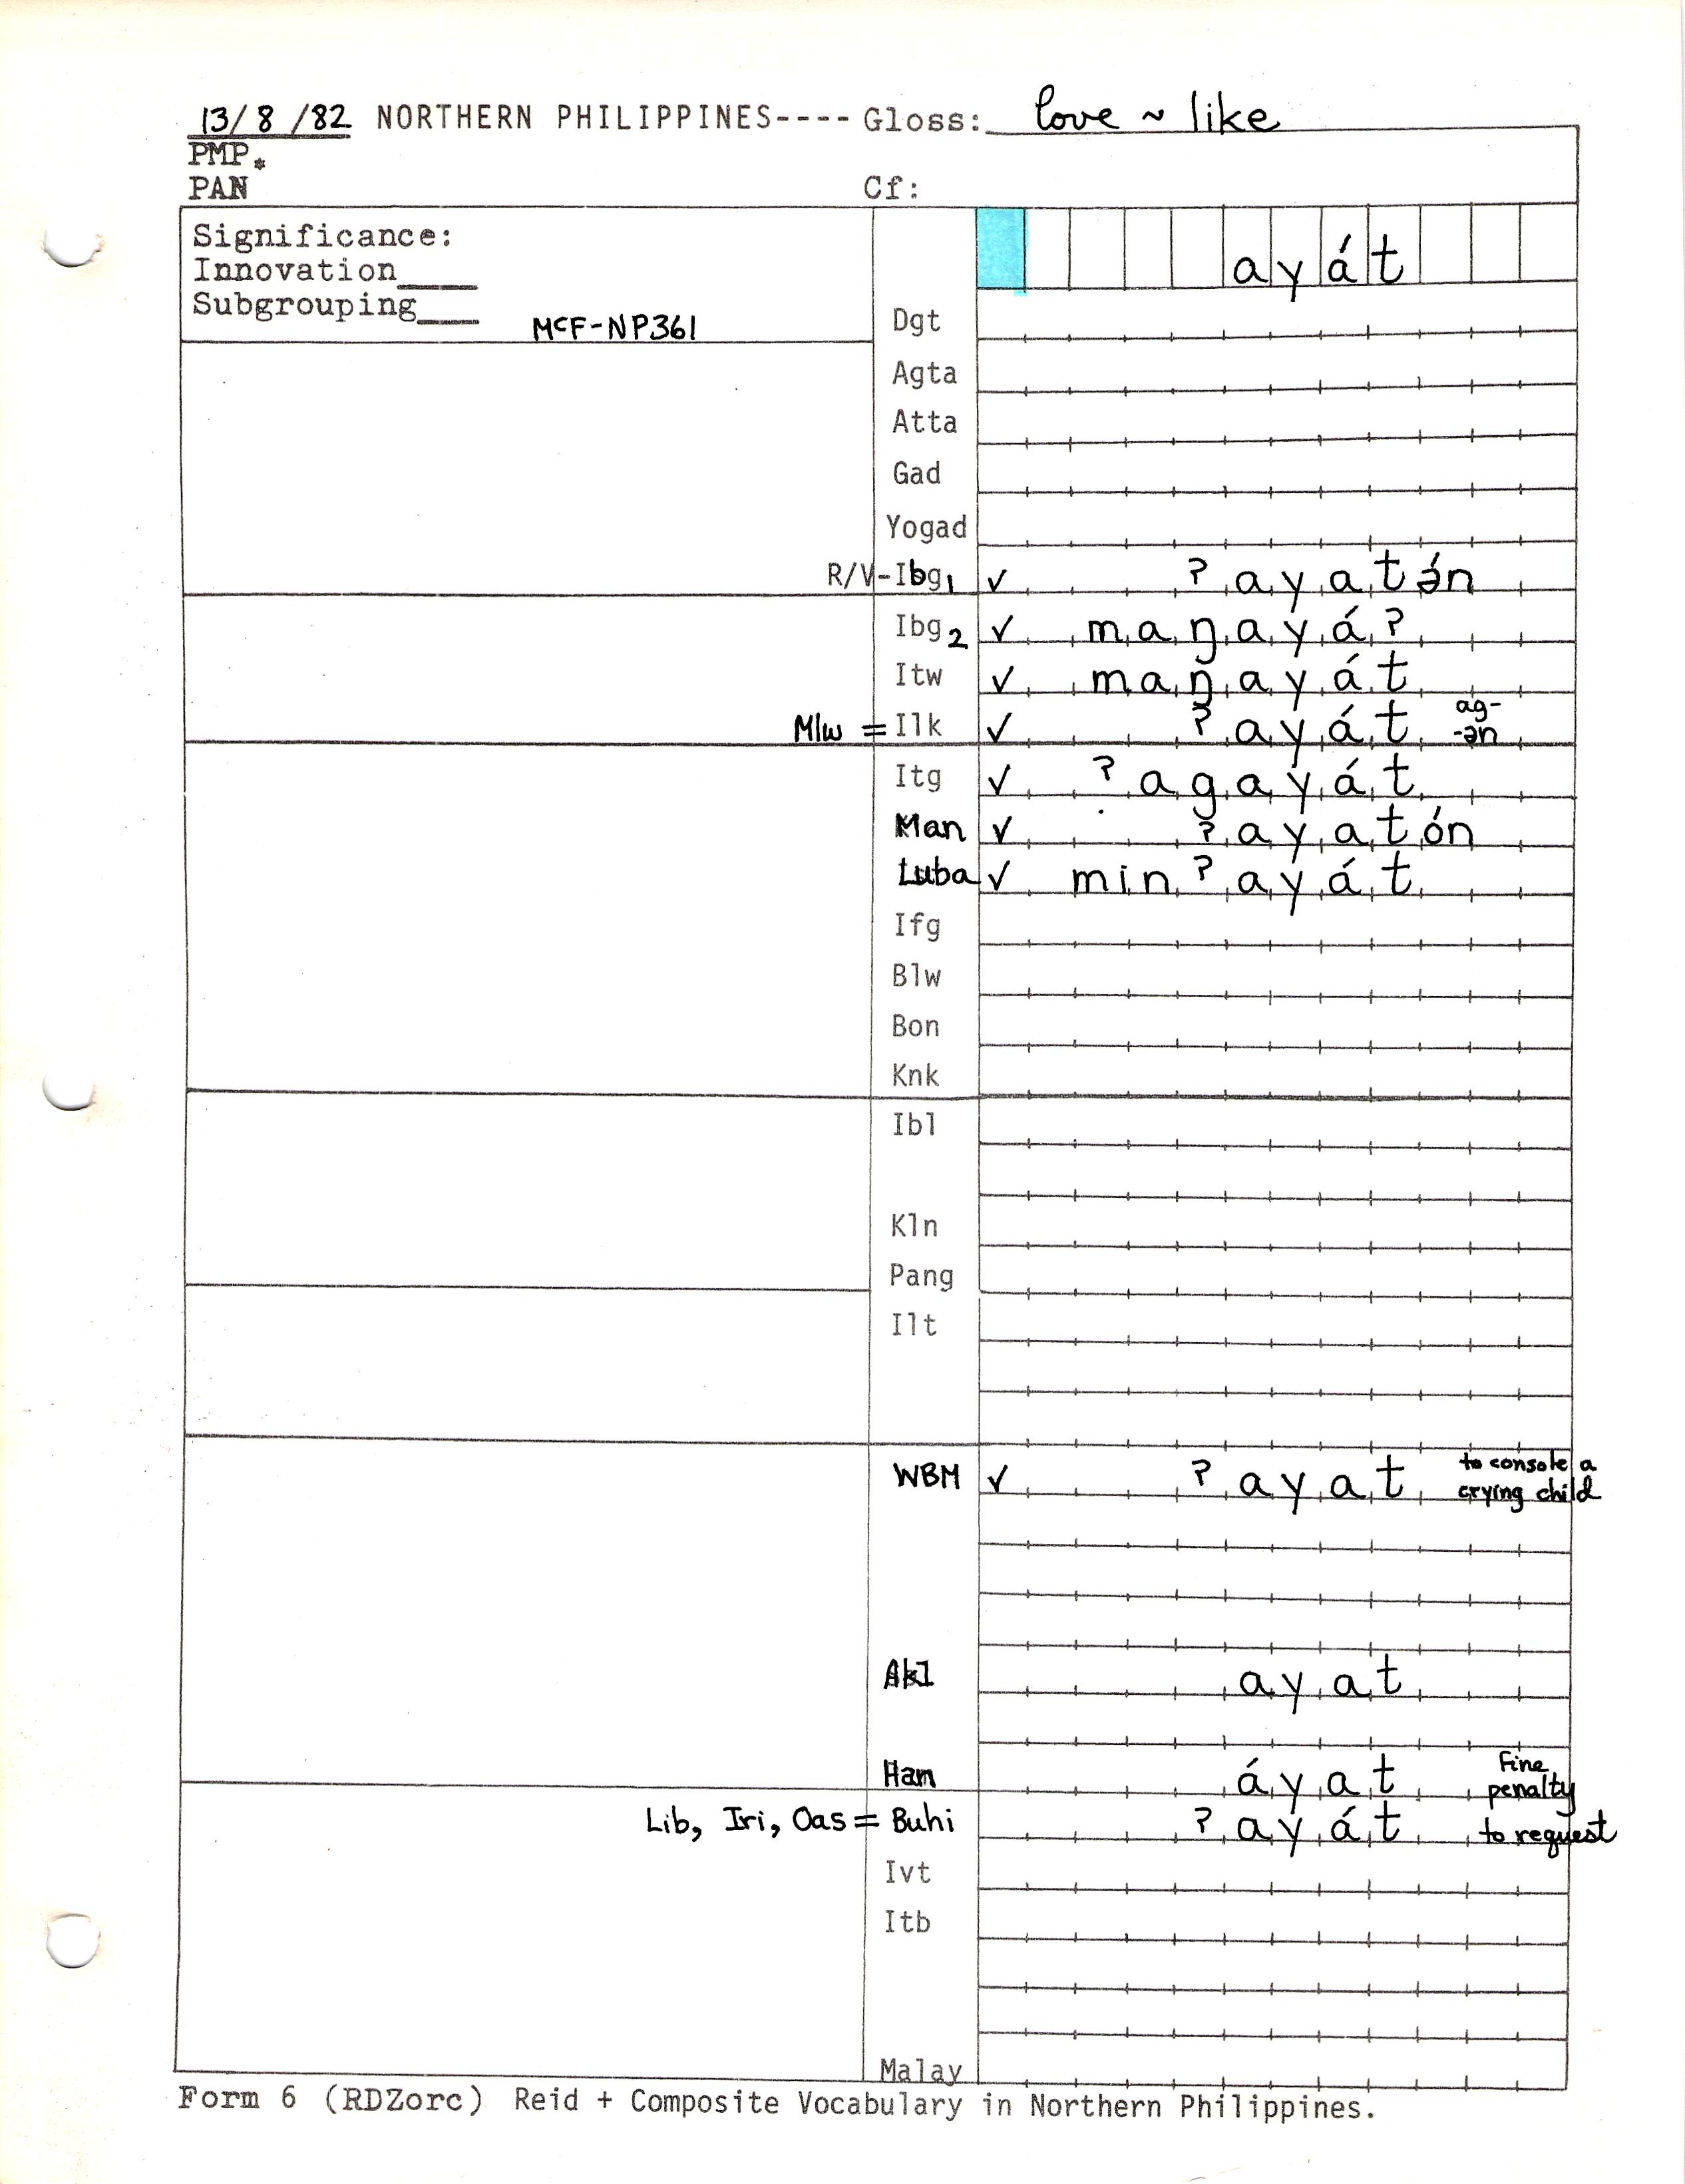 13/8/82 NORTHERN PHILIPPINES---- Gloss: love ~ like
PMP*
PAN Cf:
Significance:
Innovation____
Subgrouping____
McF-NP361
ayát
Dgt
Agta
Atta
Gad
Yogad
R/V-Ibg1 ✓ ʔayatə́n
Ibg2 ✓ maŋayáʔ
Itw ✓ maŋayát
Mlw = Ilk ✓ ʔayát ag- -ən
Itg ✓ ʔagayát
Man ✓ ʔayatón
Luba ✓ minʔayát
Ifg
Blw
Bon
Knk
Ibl
Kln
Pang
Ilt
WBM ✓ ʔayat to console a crying child
Akl ayat
Ham áyat fine penalty
Lib, Iri, Oas = Buhi ʔayát to request
Ivt
Itb
Malay
Form 6 (RDZorc) Reid + Composite Vocabulary in Northern Philippines.